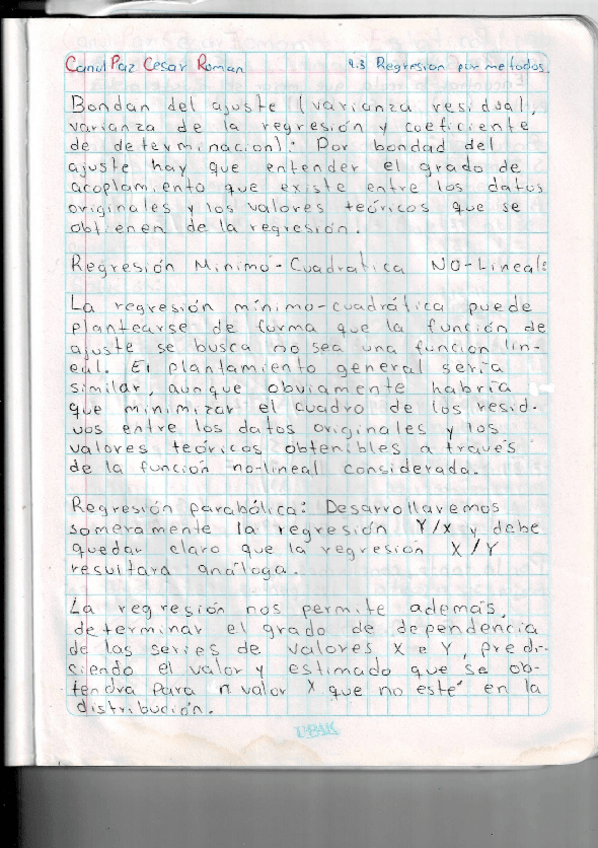 Canul Paz Cesar Roman 4.3 Regresion por metodos.
Bondan del ajuste (varianza residual,
varianza de la regresión y coeficiente
de determinacion): Por bondad del
ajuste hay que entender el grado de
acoplamiento que existe entre los datos
originales y los valores teóricos que se
obtienen de la regresión.
Regresión Minimo-Cuadratica NO-Lineal:
La regresión mínimo-cuadrática puede
plantearse de forma que la función de
ajuste se busca no sea una funcion lin-
eal. El plantamiento general sería
similar, aunque obviamente habría
que minimizar el cuadro de los resid-
uos entre los datos originales y los
valores teóricos obtenibles a través
de la función no-lineal considerada.
Regresión parabólica: Desarrollaremos
someramente la regresión Y/x y debe
quedar claro que la regresión X/Y
resultara análoga.
La regresión nos permite además,
determinar el grado de dependencia
de las series de valores X e Y, predi-
ciendo el valor y estimado que se ob-
tendra para n valor X que no esté en la
distribución.